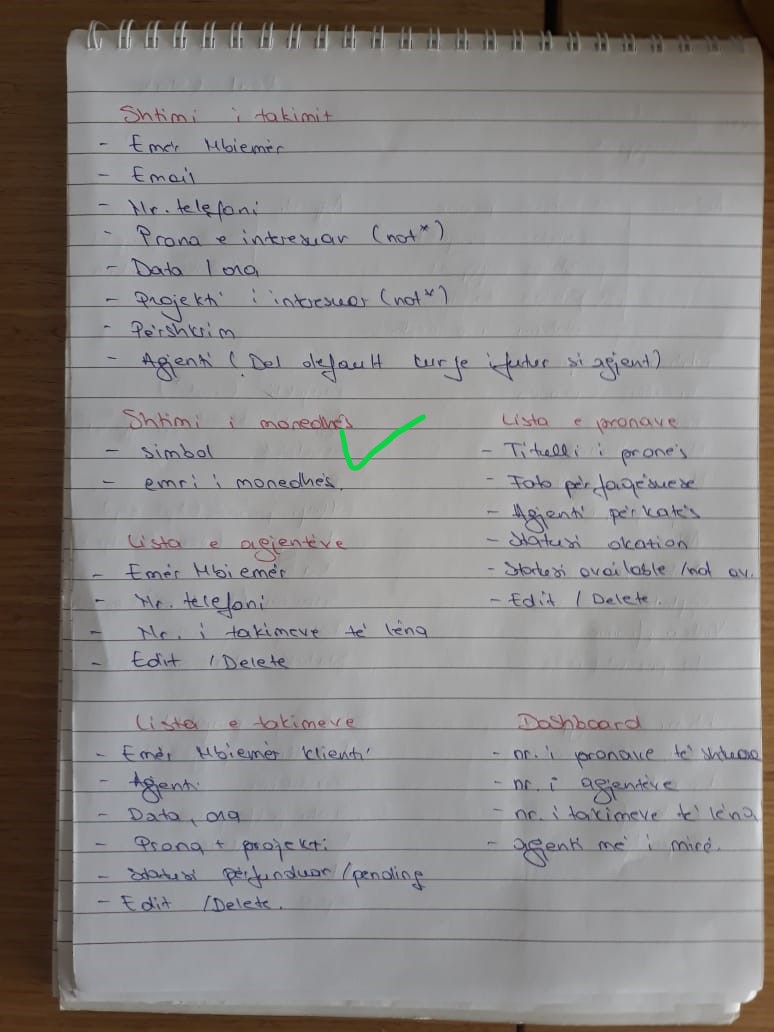 Shtimi i takimit
- Emër Mbiemër
- Email
- Nr. telefoni
- Prona e interesuar (not*)
- Data / ora
- Projekti i interesuar (not*)
- Përshkrim
- Agjenti (Del default kur je i futur si agjent)
Shtimi i monedhës
- simbol
- emri i monedhës.
Lista e agjentëve
- Emër Mbiemër
- Nr. telefoni
- Nr. i takimeve të lëna
- Edit / Delete
Lista e pronave
- Titulli i pronës
- Foto përfaqësuese
- Agjenti përkatës
- Statusi okation
- Statusi available / not av.
- Edit / Delete.
Lista e takimeve
- Emër Mbiemër klienti
- Agjenti
- Data, ora
- Prona + projekti
- Statusi përfunduar / pending
- Edit / Delete.
Dashboard
- nr. i pronave të shtuara
- nr. i agjentëve
- nr. i takimeve të lëna
- agjenti më i mirë.